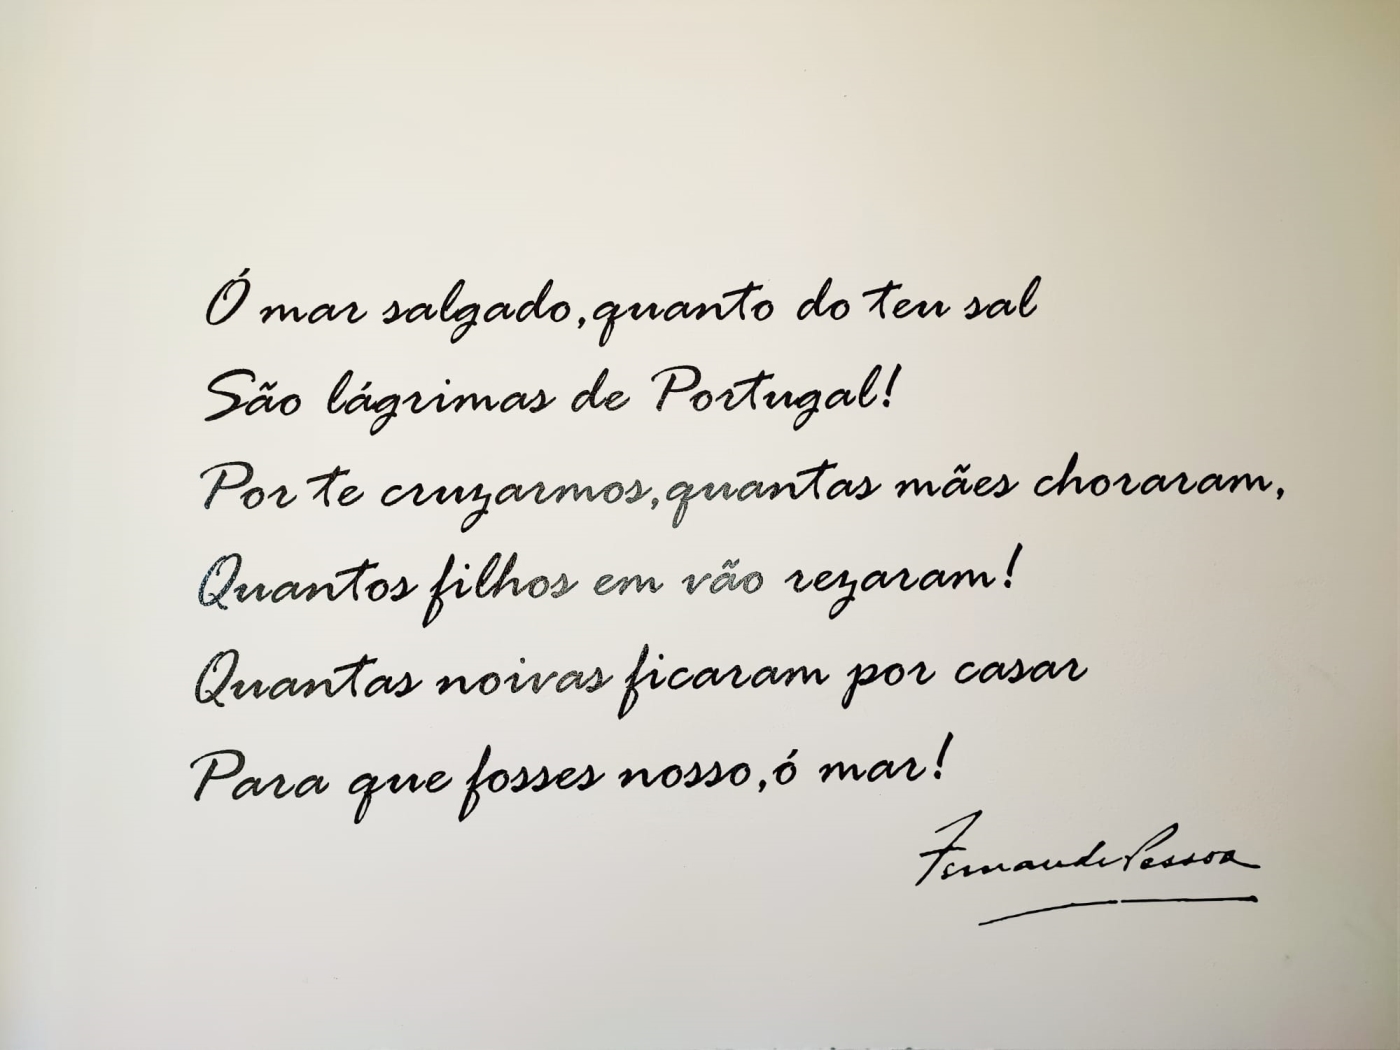 Ó mar salgado, quanto do teu sal
São lágrimas de Portugal!
Por te cruzarmos, quantas mães choraram,
Quantos filhos em vão rezaram!
Quantas noivas ficaram por casar
Para que fosses nosso, ó mar!
Fernando Pessoa